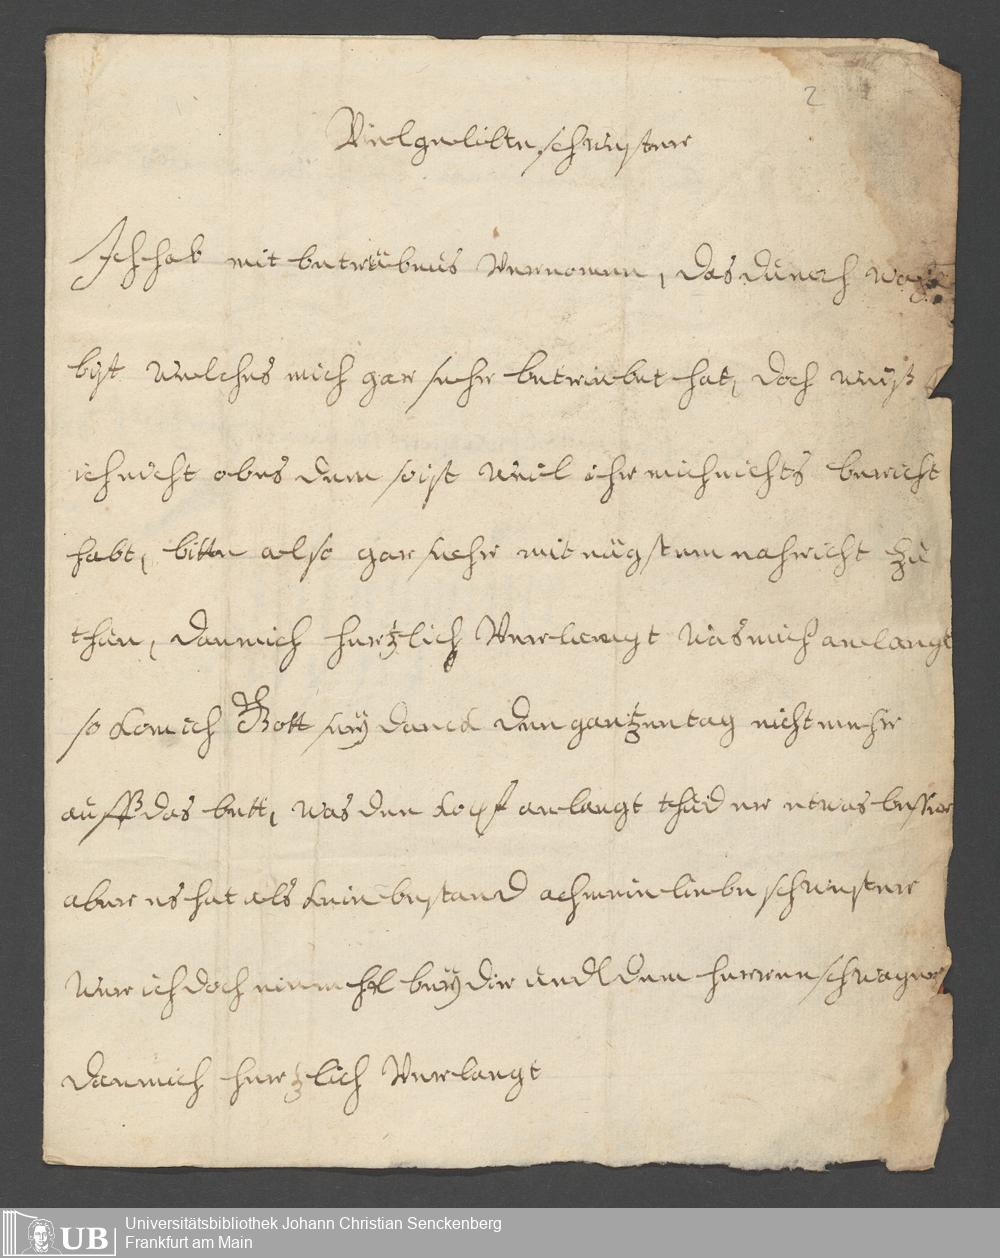 2
Vielgeliebte schwester
Ich hab mit betrübnus Vernomen, das du kranck
bist welches mich gar sehr betriebet hat, doch weiß
ich nicht ob es dem so ist weil ihr mich nichts bericht
habt, bitte also gar sehr mit nägstem nahricht zu
thun, dan mich hertzlich Verlangt was mich anlangt
so kom ich Gott sey danck den gantzen tag nicht mehr
auff das bett, was den kopf anlangt thud er etwas besser
aber es hat als kein bestand ach mein liebe schwester
wer ich doch einmahl bey dir und dem herren schwager
dan mich hertzlich Verlangt
UB
Universitätsbibliothek Johann Christian Senckenberg
Frankfurt am Main